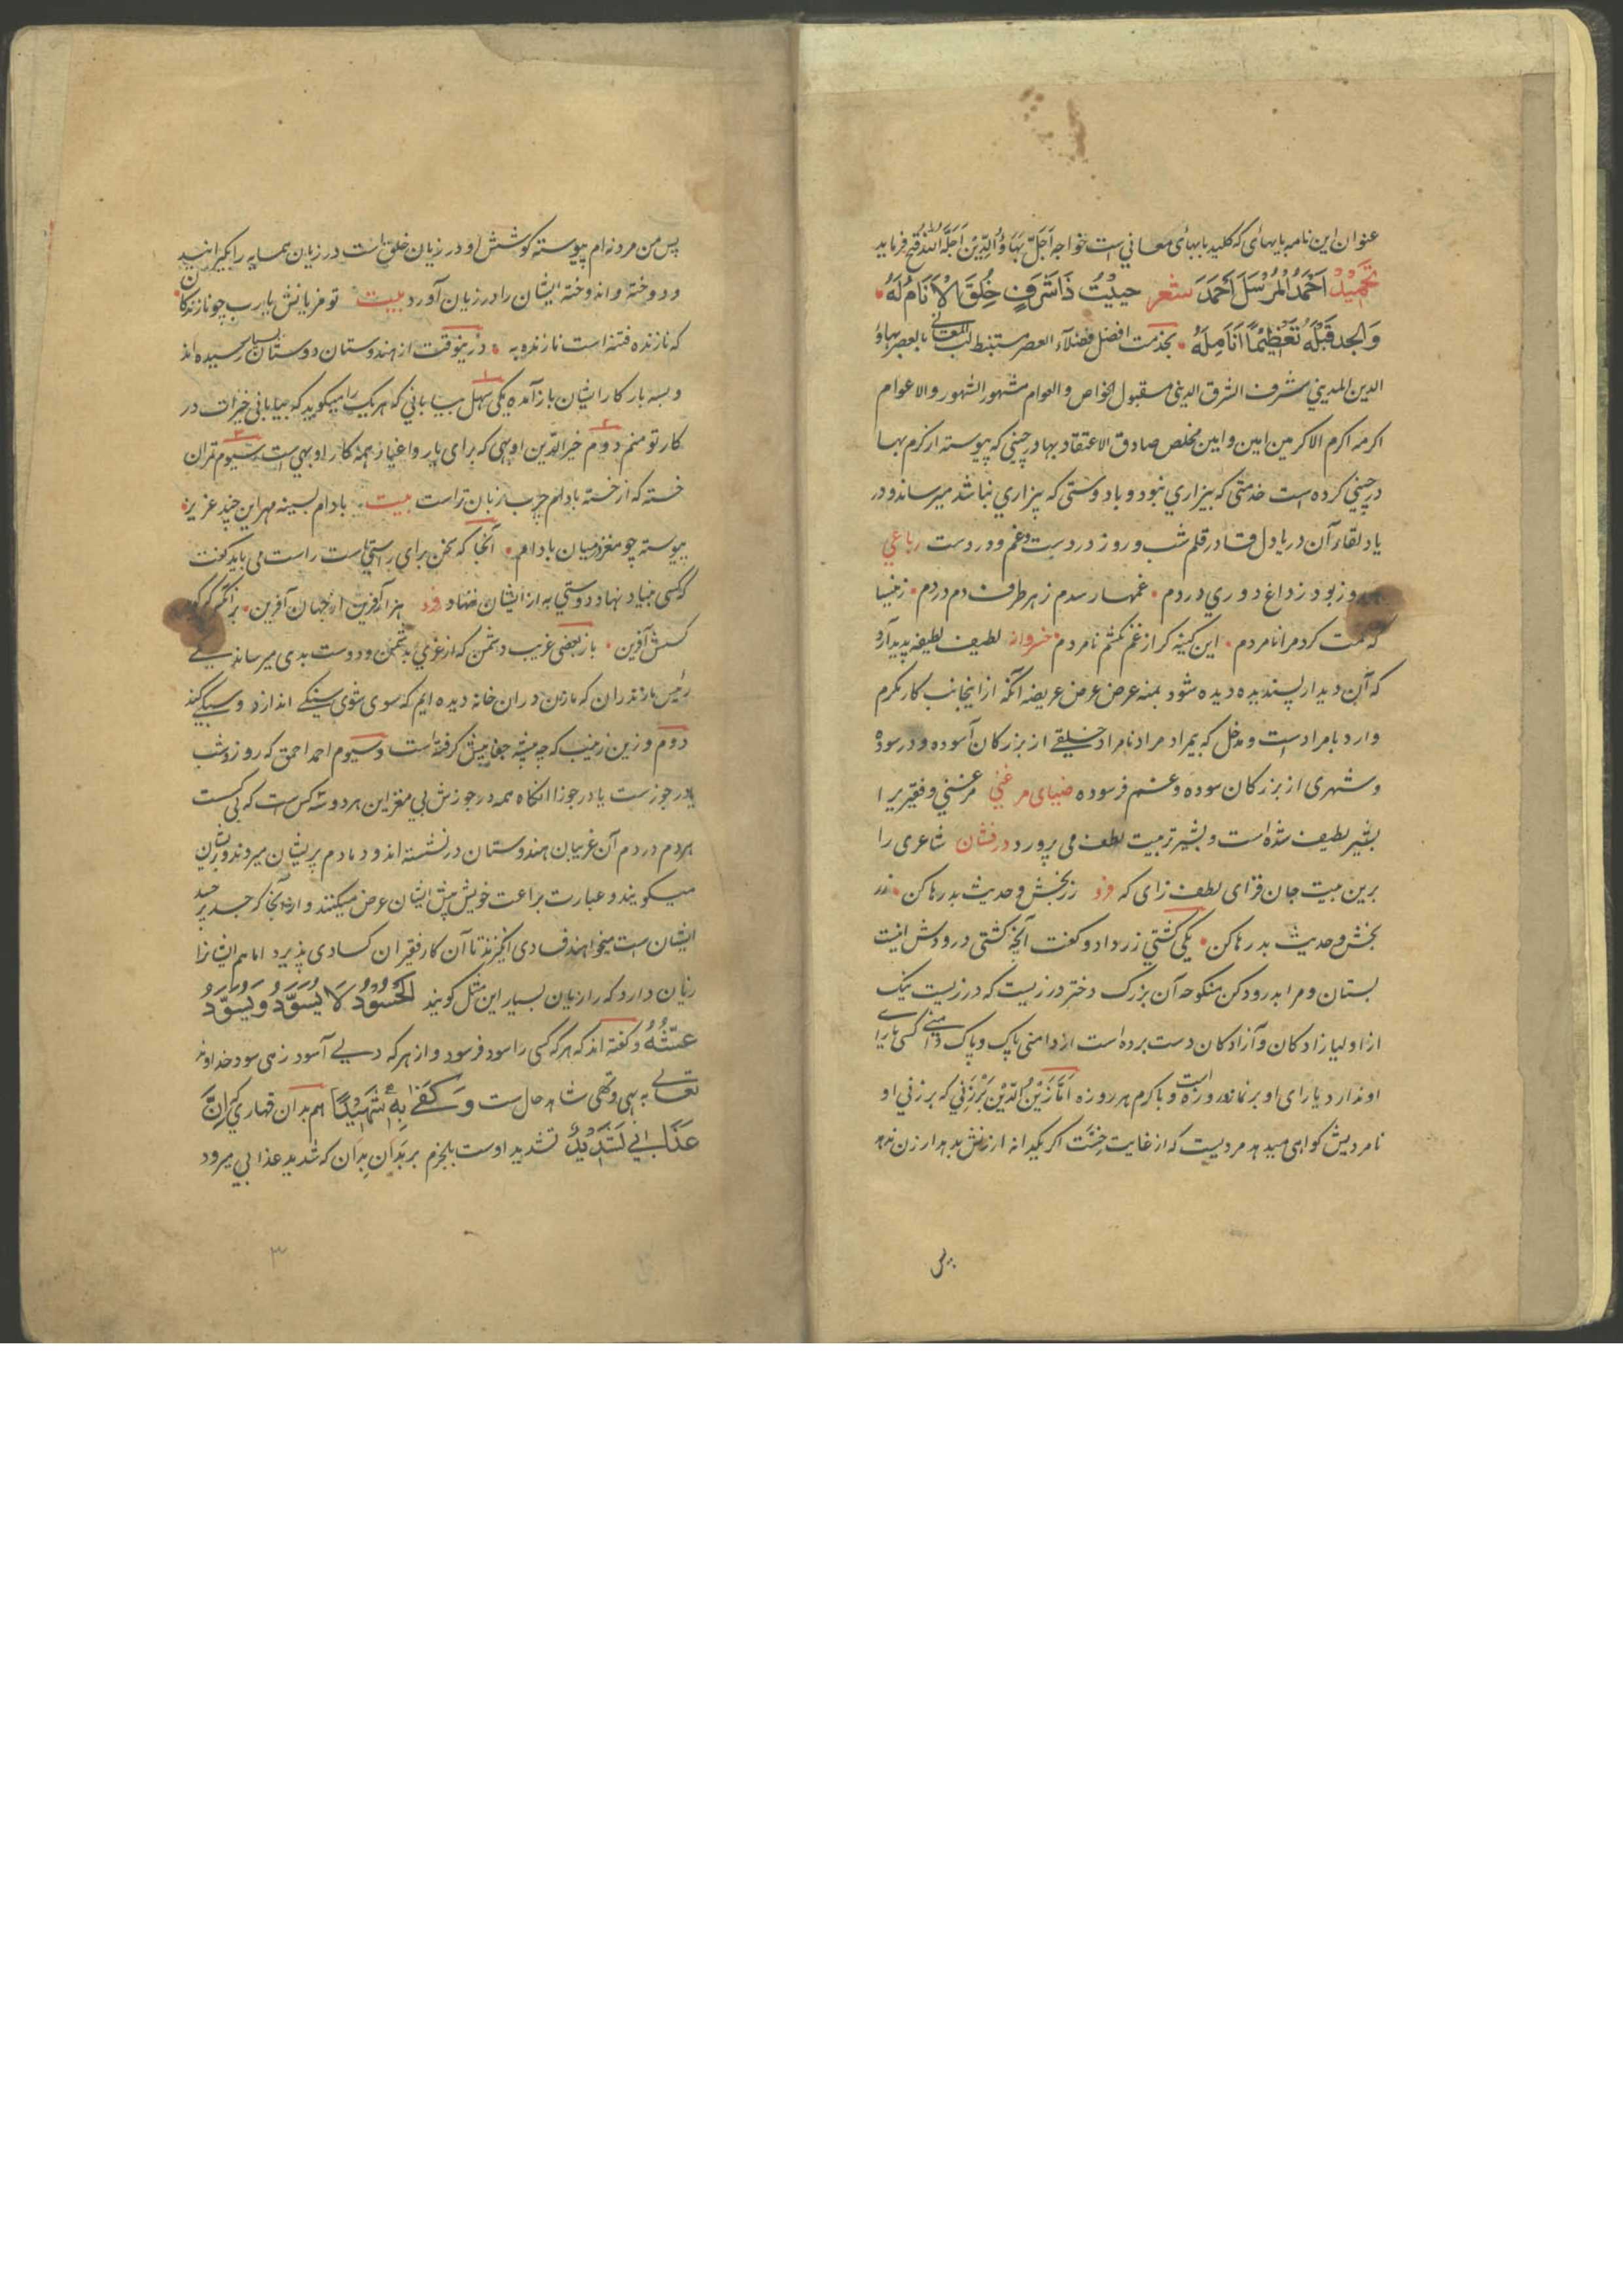 عنوان این نامه بابهای که کلید بابهای معانی است خواجه اجل بهاؤ الدین اجله الله فرماید
تحمید احمد المرسل احمد شعر حییت ذا شرف خلق الانام له
والجد قبله تعظیما انامله بخدمت افضل فضلآء العصر مستنبط لب المعانی بالبصر بهاؤ
الدین المدینی مشرف الشرق الدینی مقبول الخواص والعوام مشهور الشهور والاعوام
اکرمه اکرم الاکرمین امین وامین مخلص صادق الاعتقاد بهادر چینی که پیوسته از کرم بها
در چینی کرده است خدمتی که بیزاری نبود و باد وستی که بیزاری نباشد میرساند و در
یاد لقاء آن دریا دل قادر قلم شب و روز در دست و غم و درد ست رباعی
روز بود ز داغ دوری در دم غمها رسدم ز هر طرف دم در دم زینسا
که مت کرد مرا نامردم این کینه کر از غم نکشتم نامردم خسروانه لطیف لطیفه پدید آرد
که آن دیدار پسندیده دیده شود بمنه عرض عرض عریضه آنکه از اینجانب کار مکرم
وارد بامرادست و مدخل که بمراد مراد نامراد خلیقے از بزرکان آسوده و در سوده
و شهری از بزرکان سوده و غم فرسوده ضیبای مر غنی مر غنی و فقیر را
بشیر لطیف شده است و بشیر تربیت لطف می پرورد درفشان شاعری را
برین بیت جان فزای لطف زای که فرد زر بخش و حدیث بدر رها کن زر
بخش و حدیث بدر رها کن یکی کشتی زر داد و گفت آنچه کشتی درودش اینت
بستان و مرا بدرود کن منکوحه آن بزرک دختر درزیست که درزیست نیک
از اولیا زادکان و آزادکان دست برده است از دامنی پاک و پاک دامنی کسی یارای
او ندارد یارای او بر نماز و روزه است و باکرم هر روزه اما زین الدین برزنی که بر زنی او
نامردیش کواهی میدهد مردیست که از غایت خست اکر یکدانه ارزنش بدهد از زن ندهد
پس
پس من مرد نه ام پیوسته کوشش او در زیان خلق است در زیان همسایه را
و دوخته و اندوخته ایشان را در زیان آورد بیت تو مر زبانش یارب چو نازندکان
که نازنده فتنه است نازنده به درینوقت از هندوستان دوستان بسیار رسیده اند
و بسه بار کار ایشان باز آمده یکی سهل بیابانی که هر یک را میکوید که بیابانی خیرات در
کار تو منم دوم خیر الدین اوبهی که برای یار و اغیار همه کار او بهی است سیوم تمران
خسته که از خسته بادام چرب زبان تراست بیت بادام بسینه مهر این چند عزیز
پیوسته چو مغز در میان بادام آنجا که سخن برای راستیهاست راست می باید گفت
که کسی بنیاد نهاد دوستی به از ایشان ننهاد فرد هزار آفرین از جهان آفرین بر آنکس که
کنش آفرین باز بعضی غریب دشمن که از غوی بد بدشمن و دوست بدی میرسانند یکے
رئیس مازندران که ما زن دران خانه دیده ایم که سوی شوی سنکے اندازد و سبکی کند
دوم و زین زینب که چه پیشه جفا پیش گرفته است و سیوم احمد احمق که روز و شب
یا در جوزست یا در جوزا آنکاه همه در جوزش بی مغز این هر دو سه کس است که بی کست
هر دم در دم آن غریبان هندوستان در نشسته اند و دمادم پریشان میروند و پریشان
میکویند و عبارت براعت خویش پیش ایشان عرض میکنند و از آنجا که جسد پر حسد
ایشان است میخواهند فسادی انگیزند تا آن کار فقیران کسادی پذیرد اما هم ایشانرا
زیان دارد که را زیان بسیار این مثل کویند الحسود لا یسود و یسود
عیشه و گفته اند که هر که کسی را سود فرسود و از هر که دلے آسود زهی سود خداوند
تعالے به بهی و تهی شاهد حال ست و کفی به شهیدا هم بدان قهاری که ان
عذابی لشدید تشدید اوست بلجرم بر بدان بدان که شدید عذابی میرود
۳